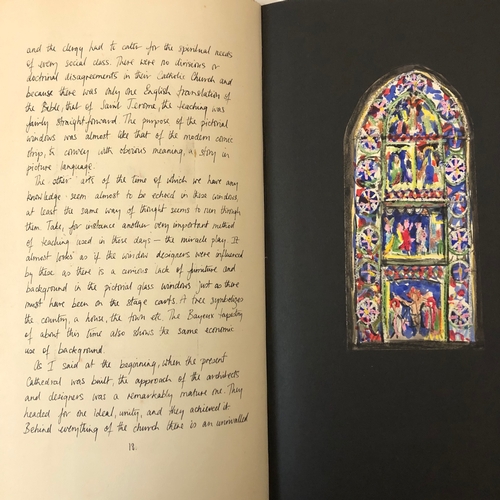 and the clergy had to cater for the spiritual needs
of every social class. There were no divisions or
doctrinal disagreements in their Catholic Church and
because there was only one English translation of
the Bible, that of Saint Jerome, the teaching was
fairly straight-forward. The purpose of the pictorial
windows was almost like that of the modern comic
strip, to convey with obvious meaning, a story in
picture language.
The other arts of the time of which we have any
knowledge seem almost to be echoed in these windows,
at least the same way of thought seems to run through
them. Take, for instance another very important method
of teaching used in those days – the miracle play. It
almost looks as if the window designers were influenced
by these as there is a curious lack of furniture and
background in the pictorial glass windows just as there
must have been on the stage carts. A tree symbolizes
the country, a house, the town etc. The Bayeux tapestry
of about this time also shows the same economic
use of background.
As I said at the beginning, when the present
Cathedral was built, the approach of the architects
and designers was a remarkably mature one. They
headed for one Ideal, unity, and they achieved it.
Behind everything of the church there is an unrivalled
18.